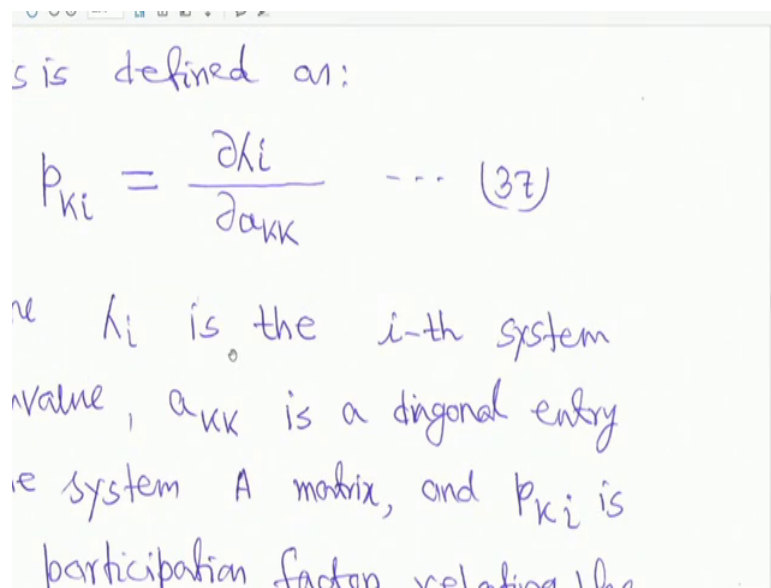 s is defined as:
p_{ki} = ∂λi / ∂a_{kk} --- (37)
λ_i is the i-th system
value, a_{kk} is a diagonal entry
e system A matrix, and p_{ki} is
participation factor relating the